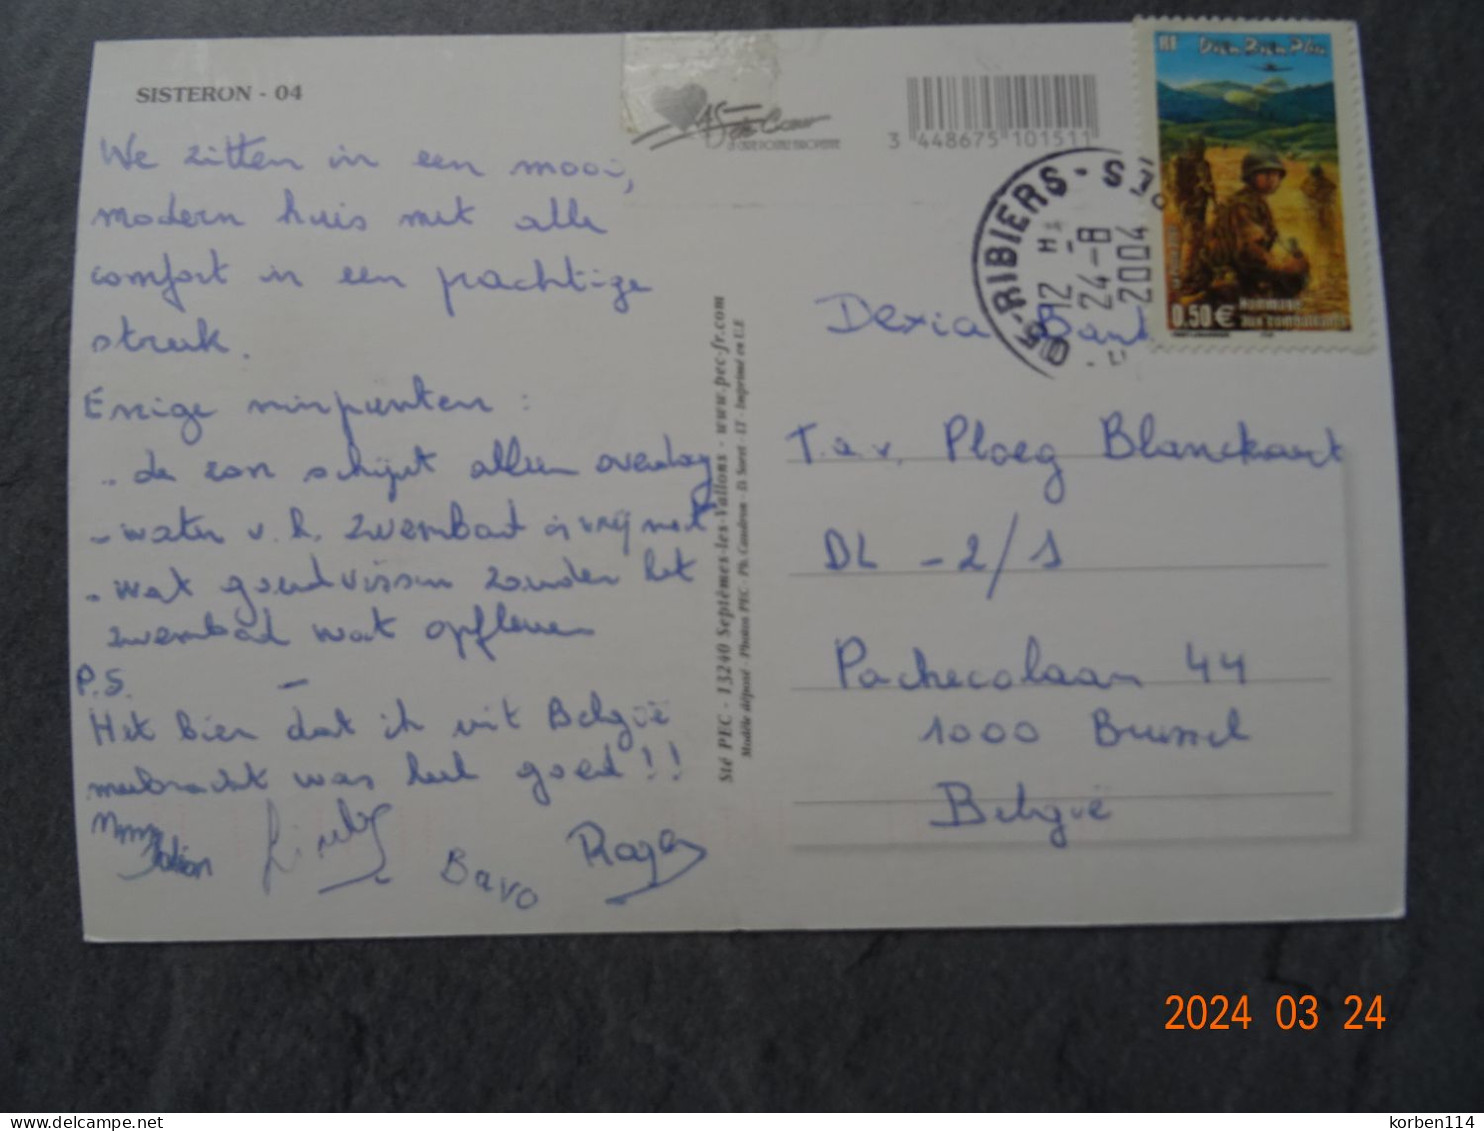 SISTERON - 04
We zitten in een mooi,
modern huis met alle
comfort in een prachtige
streek.
Enige minpunten :
- de zon schijnt alleen overdag
- water v. h. zwembad is vrij nat
- wat goudvissen zouden het
zwembad wat opfleuren
P.S. -
Het bier dat ik uit België
meebracht was heel goed !!
Bavo
Roger
3 448675 101511
Sté PEC - 13240 Septèmes-les-Vallons - www.pec-fr.com
Modèle déposé - Photos PEC - Ph. Caudron - D. Soret - LT - Imprimé en U.E
05-RIBIERS-
12 H
24-8
2004
RF
Dien Bien Phu
0.50€
Hommage
aux combattants
Dexia Bank
T.a.v. Ploeg Blanckaert
DL - 2/1
Pachecolaan 44
1000 Brussel
België
2024 03 24
korben114